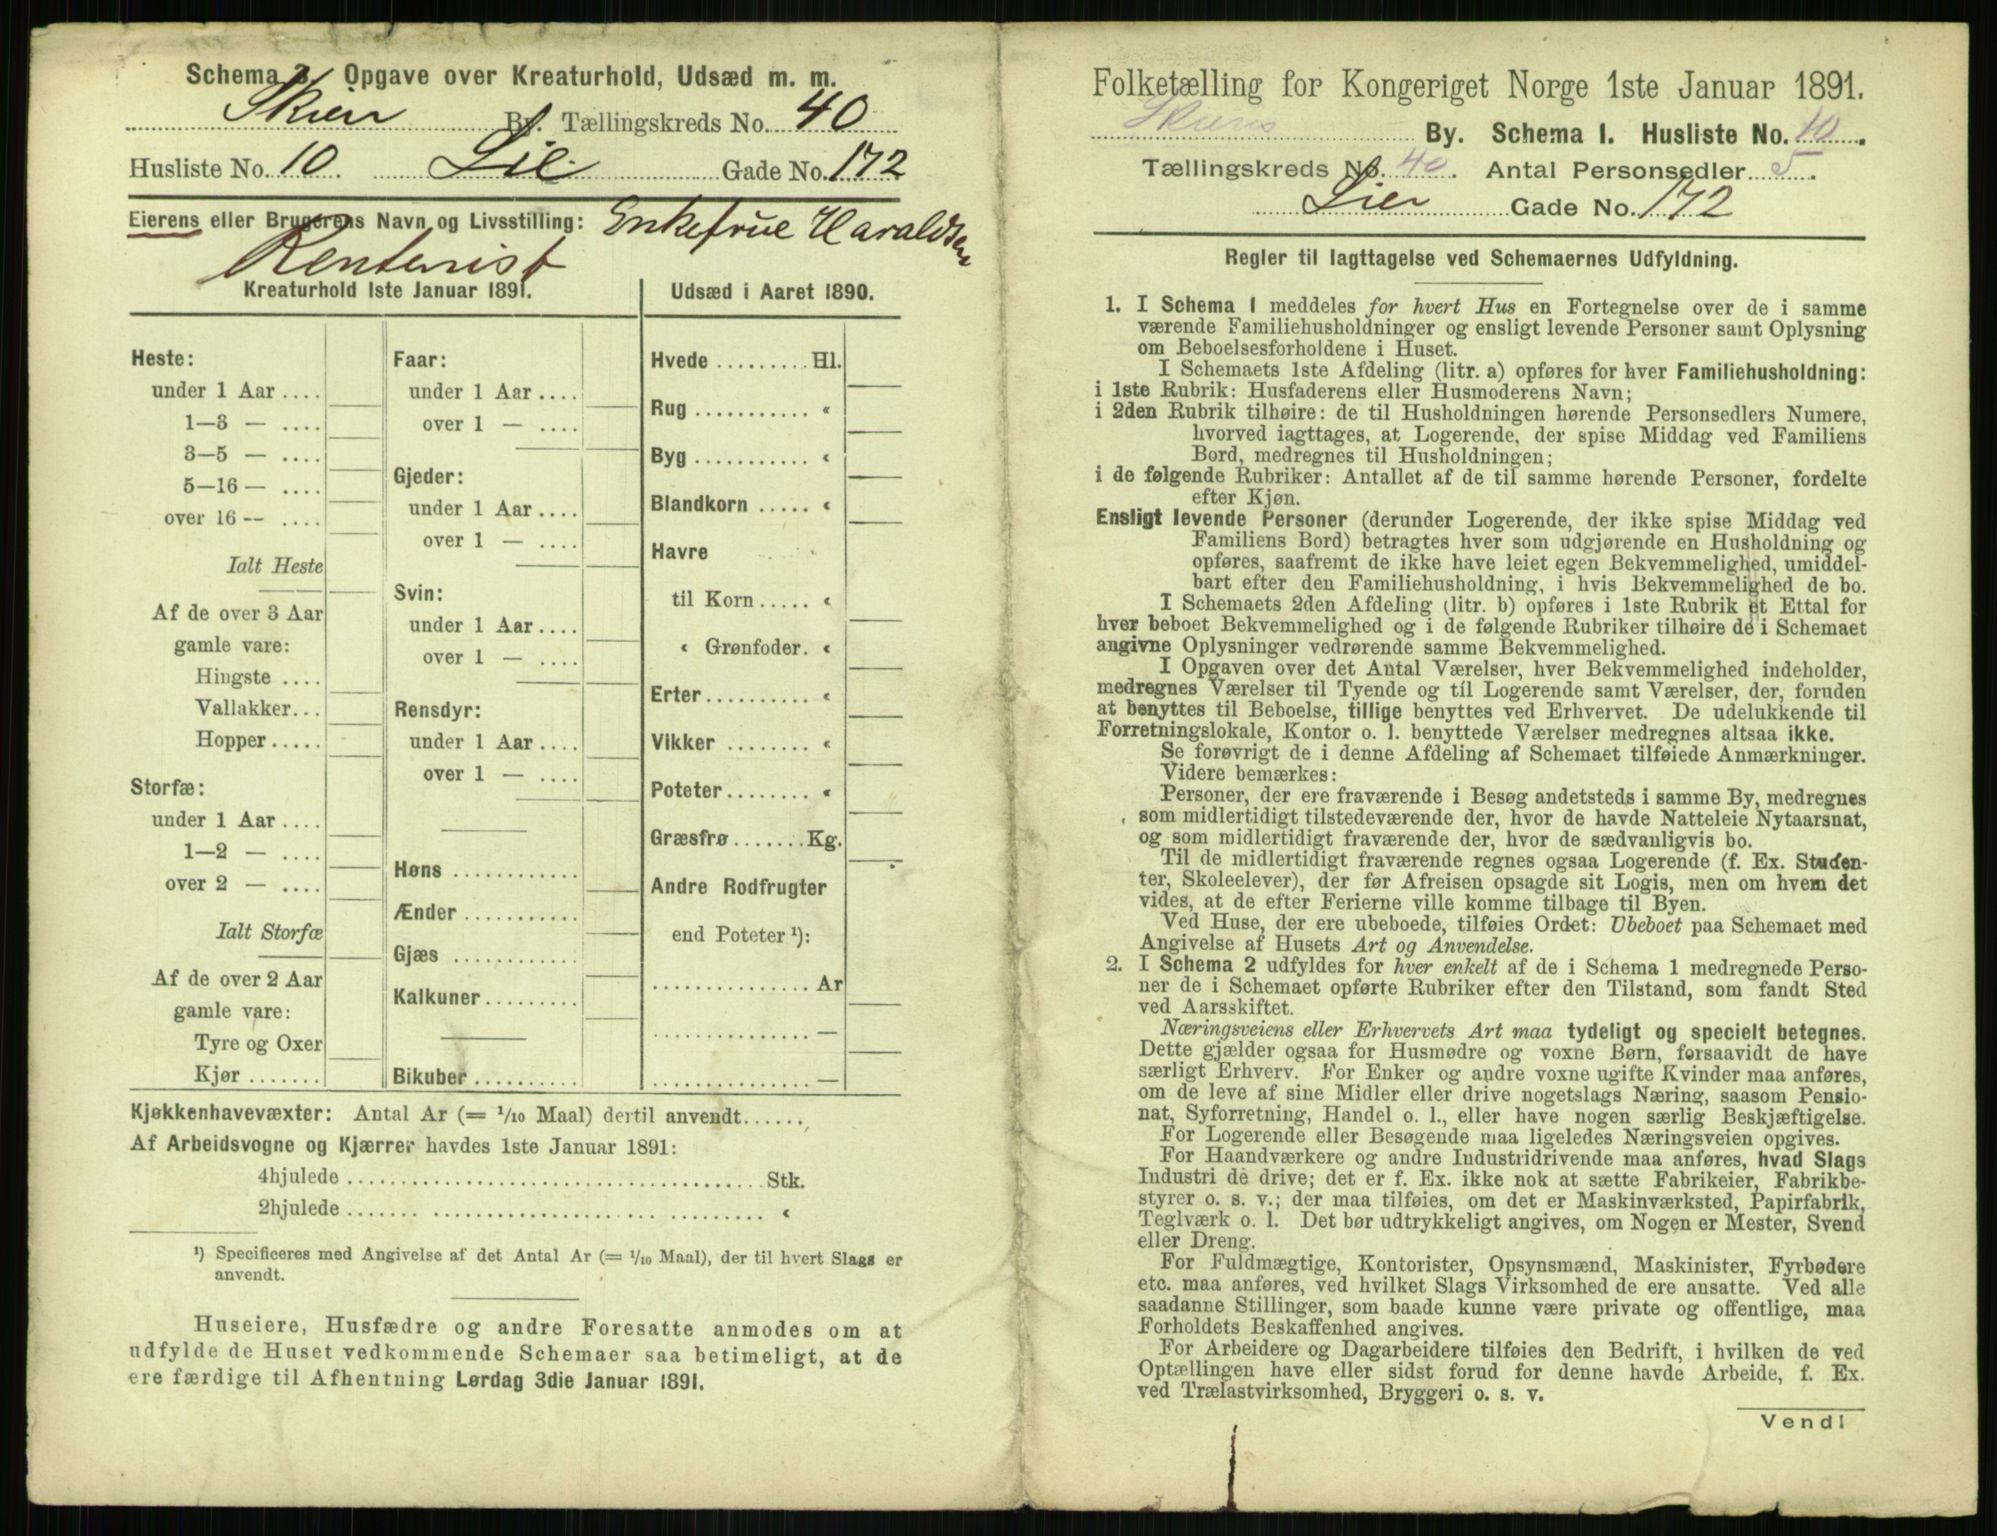 Schema 3. Opgave over Kreaturhold, Udsæd m. m.
Skien By. Tællingskreds No. 40
Husliste No. 10. Lie Gade No. 172
Eierens eller Brugerens Navn og Livsstilling: Enkefrue Haraldsen
Rentenist
Kreaturhold 1ste Januar 1891.
Heste:
under 1 Aar ....
1—3 — ....
3—5 — ....
5—16 — ....
over 16 -- ....
Ialt Heste
Af de over 3 Aar
gamle vare:
Hingste ....
Vallakker...
Hopper.....
Storfæ:
under 1 Aar ....
1—2 — ....
over 2 — ....
Ialt Storfæ
Af de over 2 Aar
gamle vare:
Tyre og Oxer
Kjør .......
Faar:
under 1 Aar ....
over 1 — ....
Gjeder:
under 1 Aar ....
over 1 — ....
Svin:
under 1 Aar ....
over 1 — ....
Rensdyr:
under 1 Aar ....
over 1 — ....
Høns ............
Ænder ...........
Gjæs ............
Kalkuner.........
Bikuber ..........
Udsæd i Aaret 1890.
Hvede ......... Hl.
Rug ........... «
Byg ........... «
Blandkorn ..... «
Havre
til Korn..... «
« Grønfoder. «
Erter.......... «
Vikker ........ «
Poteter........ «
Græsfrø ....... Kg.
Andre Rodfrugter
end Poteter ¹):
............... Ar
............... —
............... —
Kjøkkenhavevæxter: Antal Ar (= 1/10 Maal) dertil anvendt......
Af Arbeidsvogne og Kjærrer havdes 1ste Januar 1891:
4hjulede ................................... Stk.
2hjulede ................................... «
¹) Specificeres med Angivelse af det Antal Ar (= 1/10 Maal), der til hvert Slags er
anvendt.
Huseiere, Husfædre og andre Foresatte anmodes om at
udfylde de Huset vedkommende Schemaer saa betimeligt, at de
ere færdige til Afhentning Lørdag 3die Januar 1891.
Folketælling for Kongeriget Norge 1ste Januar 1891.
Skiens By. Schema 1. Husliste No. 10.
Tællingskreds No. 40. Antal Personsedler 5.
Lier Gade No. 172
Regler til Iagttagelse ved Schemaernes Udfyldning.
1. I Schema 1 meddeles for hvert Hus en Fortegnelse over de i samme
værende Familiehusholdninger og ensligt levende Personer samt Oplysning
om Beboelsesforholdene i Huset.
I Schemaets 1ste Afdeling (litr. a) opføres for hver Familiehusholdning:
i 1ste Rubrik: Husfaderens eller Husmoderens Navn;
i 2den Rubrik tilhøire: de til Husholdningen hørende Personsedlers Numere,
hvorved iagttages, at Logerende, der spise Middag ved Familiens
Bord, medregnes til Husholdningen;
i de følgende Rubriker: Antallet af de til samme hørende Personer, fordelte
efter Kjøn.
Ensligt levende Personer (derunder Logerende, der ikke spise Middag ved
Familiens Bord) betragtes hver som udgjørende en Husholdning og
opføres, saafremt de ikke have leiet egen Bekvemmelighed, umiddel-
bart efter den Familiehusholdning, i hvis Bekvemmelighed de bo.
I Schemaets 2den Afdeling (litr. b) opføres i 1ste Rubrik et Ettal for
hver beboet Bekvemmelighed og i de følgende Rubriker tilhøire de i Schemaet
angivne Oplysninger vedrørende samme Bekvemmelighed.
I Opgaven over det Antal Værelser, hver Bekvemmelighed indeholder,
medregnes Værelser til Tyende og til Logerende samt Værelser, der, foruden
at benyttes til Beboelse, tillige benyttes ved Erhvervet. De udelukkende til
Forretningslokale, Kontor o. l. benyttede Værelser medregnes altsaa ikke.
Se forøvrigt de i denne Afdeling af Schemaet tilføiede Anmærkninger.
Videre bemærkes:
Personer, der ere fraværende i Besøg andetsteds i samme By, medregnes
som midlertidigt tilstedeværende der, hvor de havde Natteleie Nytaarsnat,
og som midlertidigt fraværende der, hvor de sædvanligvis bo.
Til de midlertidigt fraværende regnes ogsaa Logerende (f. Ex. Studen-
ter, Skoleelever), der før Afreisen opsagde sit Logis, men om hvem det
vides, at de efter Ferierne ville komme tilbage til Byen.
Ved Huse, der ere ubeboede, tilføies Ordet: Ubeboet paa Schemaet med
Angivelse af Husets Art og Anvendelse.
2. I Schema 2 udfyldes for hver enkelt af de i Schema 1 medregnede Perso-
ner de i Schemaet opførte Rubriker efter den Tilstand, som fandt Sted
ved Aarsskiftet.
Næringsveiens eller Erhvervets Art maa tydeligt og specielt betegnes.
Dette gjælder ogsaa for Husmødre og voxne Børn, forsaavidt de have
særligt Erhverv. For Enker og andre voxne ugifte Kvinder maa anføres,
om de leve af sine Midler eller drive nogetslags Næring, saasom Pensio-
nat, Syforretning, Handel o. l., eller have nogen særlig Beskjæftigelse.
For Logerende eller Besøgende maa ligeledes Næringsveien opgives.
For Haandværkere og andre Industridrivende maa anføres, hvad Slags
Industri de drive; det er f. Ex. ikke nok at sætte Fabrikeier, Fabrikbe-
styrer o. s. v.; der maa tilføies, om det er Maskinværksted, Papirfabrik,
Teglværk o. l. Det bør udtrykkeligt angives, om Nogen er Mester, Svend
eller Dreng.
For Fuldmægtige, Kontorister, Opsynsmænd, Maskinister, Fyrbødere
etc. maa anføres, ved hvilket Slags Virksomhed de ere ansatte. Ved alle
saadanne Stillinger, som baade kunne være private og offentlige, maa
Forholdets Beskaffenhed angives.
For Arbeidere og Dagarbeidere tilføies den Bedrift, i hvilken de ved
Optællingen have eller sidst forud for denne havde Arbeide, f. Ex.
ved Trælastvirksomhed, Bryggeri o. s. v.
Vend!